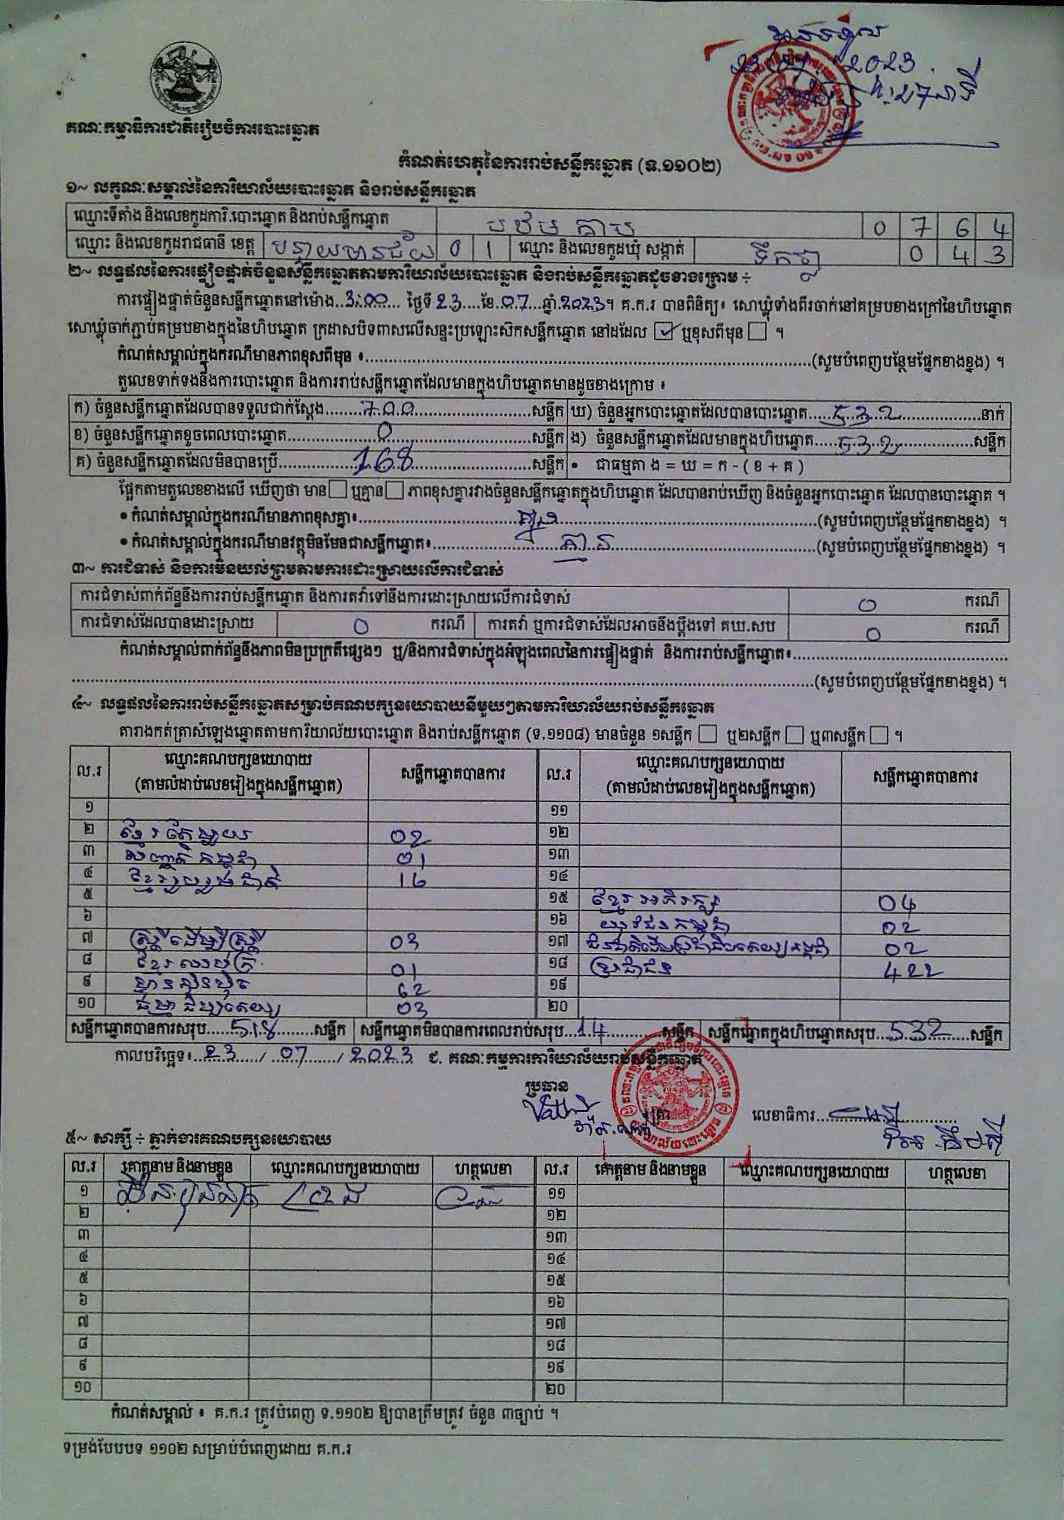 2023
27 នាទី
គណៈកម្មាធិការជាតិរៀបចំការបោះឆ្នោត
កំណត់ហេតុនៃការរាប់សន្លឹកឆ្នោត (ទ.១១០២)
១~ លក្ខណៈសម្គាល់នៃការិយាល័យបោះឆ្នោត និងរាប់សន្លឹកឆ្នោត
ឈ្មោះទីតាំង និងលេខកូដការិ.បោះឆ្នោត និងរាប់សន្លឹកឆ្នោត 0 7 6 4
ឈ្មោះ និងលេខកូដរាជធានី ខេត្ត បន្ទាយមានជ័យ 0 1 ឈ្មោះ និងលេខកូដឃុំ សង្កាត់ 0 4 3
២~ លទ្ធផលនៃការផ្ទៀងផ្ទាត់ចំនួនសន្លឹកឆ្នោតតាមការិយាល័យបោះឆ្នោត និងរាប់សន្លឹកឆ្នោតដូចខាងក្រោម ÷
ការផ្ទៀងផ្ទាត់ចំនួនសន្លឹកឆ្នោតនៅម៉ោង..3:00.... ថ្ងៃទី 23....ខែ.07...ឆ្នាំ.2023។ គ.ក.រ បានពិនិត្យ៖ សោឃ្លុំទាំងពីរចាក់នៅគម្របខាងក្រៅនៃហិបឆ្នោត
សោឃ្លុំចាក់ភ្ជាប់គម្របខាងក្នុងនៃហិបឆ្នោត ក្រដាសបិទពាសលើសន្ទះប្រឡោះសិកសន្លឹកឆ្នោត នៅដដែល ☑ ឬខុសពីមុន ☐ ។
កំណត់សម្គាល់ក្នុងករណីមានភាពខុសពីមុន ៖...........(សូមបំពេញបន្ថែមផ្នែកខាងខ្នង) ។
តួលេខទាក់ទងនឹងការបោះឆ្នោត និងការរាប់សន្លឹកឆ្នោតដែលមានក្នុងហិបឆ្នោតមានដូចខាងក្រោម ៖
ក) ចំនួនសន្លឹកឆ្នោតដែលបានទទួលជាក់ស្តែង........700........សន្លឹក ឃ) ចំនួនអ្នកបោះឆ្នោតដែលបានបោះឆ្នោត.....532........នាក់
ខ) ចំនួនសន្លឹកឆ្នោតខូចពេលបោះឆ្នោត........0........សន្លឹក ង) ចំនួនសន្លឹកឆ្នោតដែលមានក្នុងហិបឆ្នោត.....532........សន្លឹក
គ) ចំនួនសន្លឹកឆ្នោតដែលមិនបានប្រើ........168........សន្លឹក • ជាធម្មតា ង = ឃ = ក - ( ខ + គ )
ផ្អែកតាមតួលេខខាងលើ ឃើញថា មាន ☐ ឬគ្មាន ☐ ភាពខុសគ្នារវាងចំនួនសន្លឹកឆ្នោតក្នុងហិបឆ្នោត ដែលបានរាប់ឃើញ និងចំនួនអ្នកបោះឆ្នោត ដែលបានបោះឆ្នោត ។
• កំណត់សម្គាល់ក្នុងករណីមានភាពខុសគ្នា៖........គ្មាន........(សូមបំពេញបន្ថែមផ្នែកខាងខ្នង) ។
• កំណត់សម្គាល់ក្នុងករណីមានវត្ថុមិនមែនជាសន្លឹកឆ្នោត៖........គ្មាន........(សូមបំពេញបន្ថែមផ្នែកខាងខ្នង) ។
៣~ ការជំទាស់ និងការមិនយល់ព្រមតាមការដោះស្រាយលើការជំទាស់
ការជំទាស់ពាក់ព័ន្ធនឹងការរាប់សន្លឹកឆ្នោត និងការតវ៉ាទៅនឹងការដោះស្រាយលើការជំទាស់ 0 ករណី
ការជំទាស់ដែលបានដោះស្រាយ 0 ករណី ការតវ៉ា ឬការជំទាស់ដែលអាចនឹងប្តឹងទៅ គឃ.សប 0 ករណី
កំណត់សម្គាល់ពាក់ព័ន្ធនឹងភាពមិនប្រក្រតីផ្សេងៗ ឬ/និងការជំទាស់ក្នុងអំឡុងពេលនៃការផ្ទៀងផ្ទាត់ និងការរាប់សន្លឹកឆ្នោត៖........
........(សូមបំពេញបន្ថែមផ្នែកខាងខ្នង) ។
៤~ លទ្ធផលនៃការរាប់សន្លឹកឆ្នោតសម្រាប់គណបក្សនយោបាយនីមួយៗតាមការិយាល័យរាប់សន្លឹកឆ្នោត
តារាងកត់ត្រាសំឡេងឆ្នោតតាមការិយាល័យបោះឆ្នោត និងរាប់សន្លឹកឆ្នោត (ទ.១១០៨) មានចំនួន ១សន្លឹក ☐ ឬ២សន្លឹក ☐ ឬ៣សន្លឹក ☐ ។
ល.រ ឈ្មោះគណបក្សនយោបាយ (តាមលំដាប់លេខរៀងក្នុងសន្លឹកឆ្នោត) សន្លឹកឆ្នោតបានការ ល.រ ឈ្មោះគណបក្សនយោបាយ (តាមលំដាប់លេខរៀងក្នុងសន្លឹកឆ្នោត) សន្លឹកឆ្នោតបានការ
១ ១១
២ 02 ១២
៣ 01 ១៣
៤ 16 ១៤
៥ ១៥ ខ្មែរអភិរក្ស 04
៦ ១៦ យុវជនកម្ពុជា 02
៧ ស្ត្រីដើម្បីស្ត្រី 03 ១៧ 02
៨ 01 ១៨ ប្រជាជន 422
៩ ហ៊្វុនស៊ិនប៉ិច 62 ១៩
១០ 03 ២០
សន្លឹកឆ្នោតបានការសរុប.....518........សន្លឹក សន្លឹកឆ្នោតមិនបានការពេលរាប់សរុប...14........សន្លឹក សន្លឹកឆ្នោតក្នុងហិបឆ្នោតសរុប...532........សន្លឹក
កាលបរិច្ឆេទ៖..23..../..07..../..2023 ជ. គណៈកម្មការការិយាល័យរាប់សន្លឹកឆ្នោត
ប្រធាន
លេខាធិការ........
៥~ សាក្សី ÷ ភ្នាក់ងារគណបក្សនយោបាយ
ល.រ គោត្តនាម និងនាមខ្លួន ឈ្មោះគណបក្សនយោបាយ ហត្ថលេខា ល.រ គោត្តនាម និងនាមខ្លួន ឈ្មោះគណបក្សនយោបាយ ហត្ថលេខា
១ ១១
២ ១២
៣ ១៣
៤ ១៤
៥ ១៥
៦ ១៦
៧ ១៧
៨ ១៨
៩ ១៩
១០ ២០
កំណត់សម្គាល់ ៖ គ.ក.រ ត្រូវបំពេញ ទ.១១០២ ឱ្យបានត្រឹមត្រូវ ចំនួន ៣ច្បាប់ ។
ទម្រង់បែបបទ ១១០២ សម្រាប់បំពេញដោយ គ.ក.រ